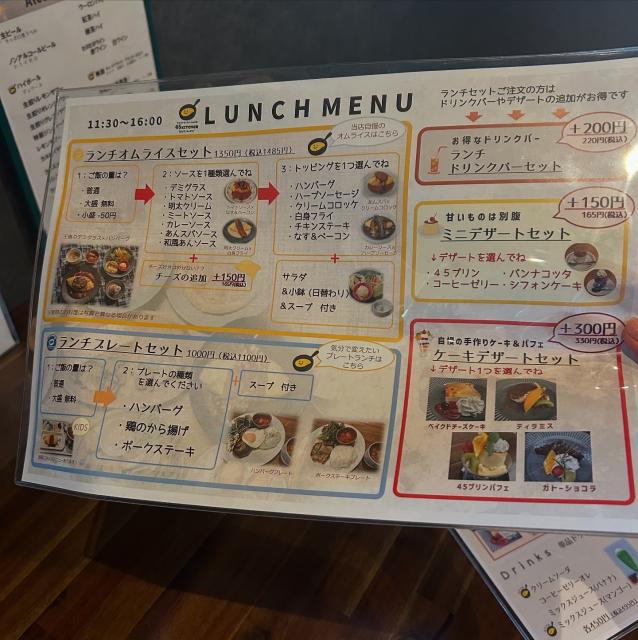 生ビール
ノンアルコールビール
ハイボール
11:30～16:00
LUNCH MENU
ランチセットご注文の方は
ドリンクバーやデザートの追加がお得です
当店自慢の
オムライスはこちら
ランチオムライスセット 1350円(税込1485円)
1:ご飯の量は？
・普通
・大盛 無料
・小盛 -50円
2:ソースを1種類選んでね
・デミグラス
・トマトソース
・明太クリーム
・ミートソース
・カレーソース
・あんスパソース
・和風あんソース
3:トッピングを1つ選んでね
・ハンバーグ
・ハーブソーセージ
・クリームコロッケ
・白身フライ
・チキンステーキ
・なす&ベーコン
+
チーズの追加 +150円
+
サラダ
&小鉢(日替わり)
&スープ 付き
ランチプレートセット 1000円(税込1100円)
気分で変えたい
プレートランチは
こちら
1:ご飯の量は？
・普通
・大盛 無料
KIDS
2:プレートの種類
を選んでください
・ハンバーグ
・鶏のから揚げ
・ポークステーキ
+
スープ 付き
ハンバーグプレート
ポークステーキプレート
+200円
220円(税込)
お得なドリンクバー
ランチ
ドリンクバーセット
+150円
165円(税込)
甘いものは別腹
ミニデザートセット
↓デザートを選んでね
・45プリン ・パンナコッタ
・コーヒーゼリー ・シフォンケーキ
+300円
330円(税込)
自慢の手作りケーキ&パフェ
ケーキデザートセット
↓デザート1つを選んでね
ベイクドチーズケーキ
ティラミス
45プリンパフェ
ガトーショコラ
Drinks
クリームソーダ
コーヒーゼリーオレ
ミックスジュース(バナナ)
ミックスジュース(マンゴー)